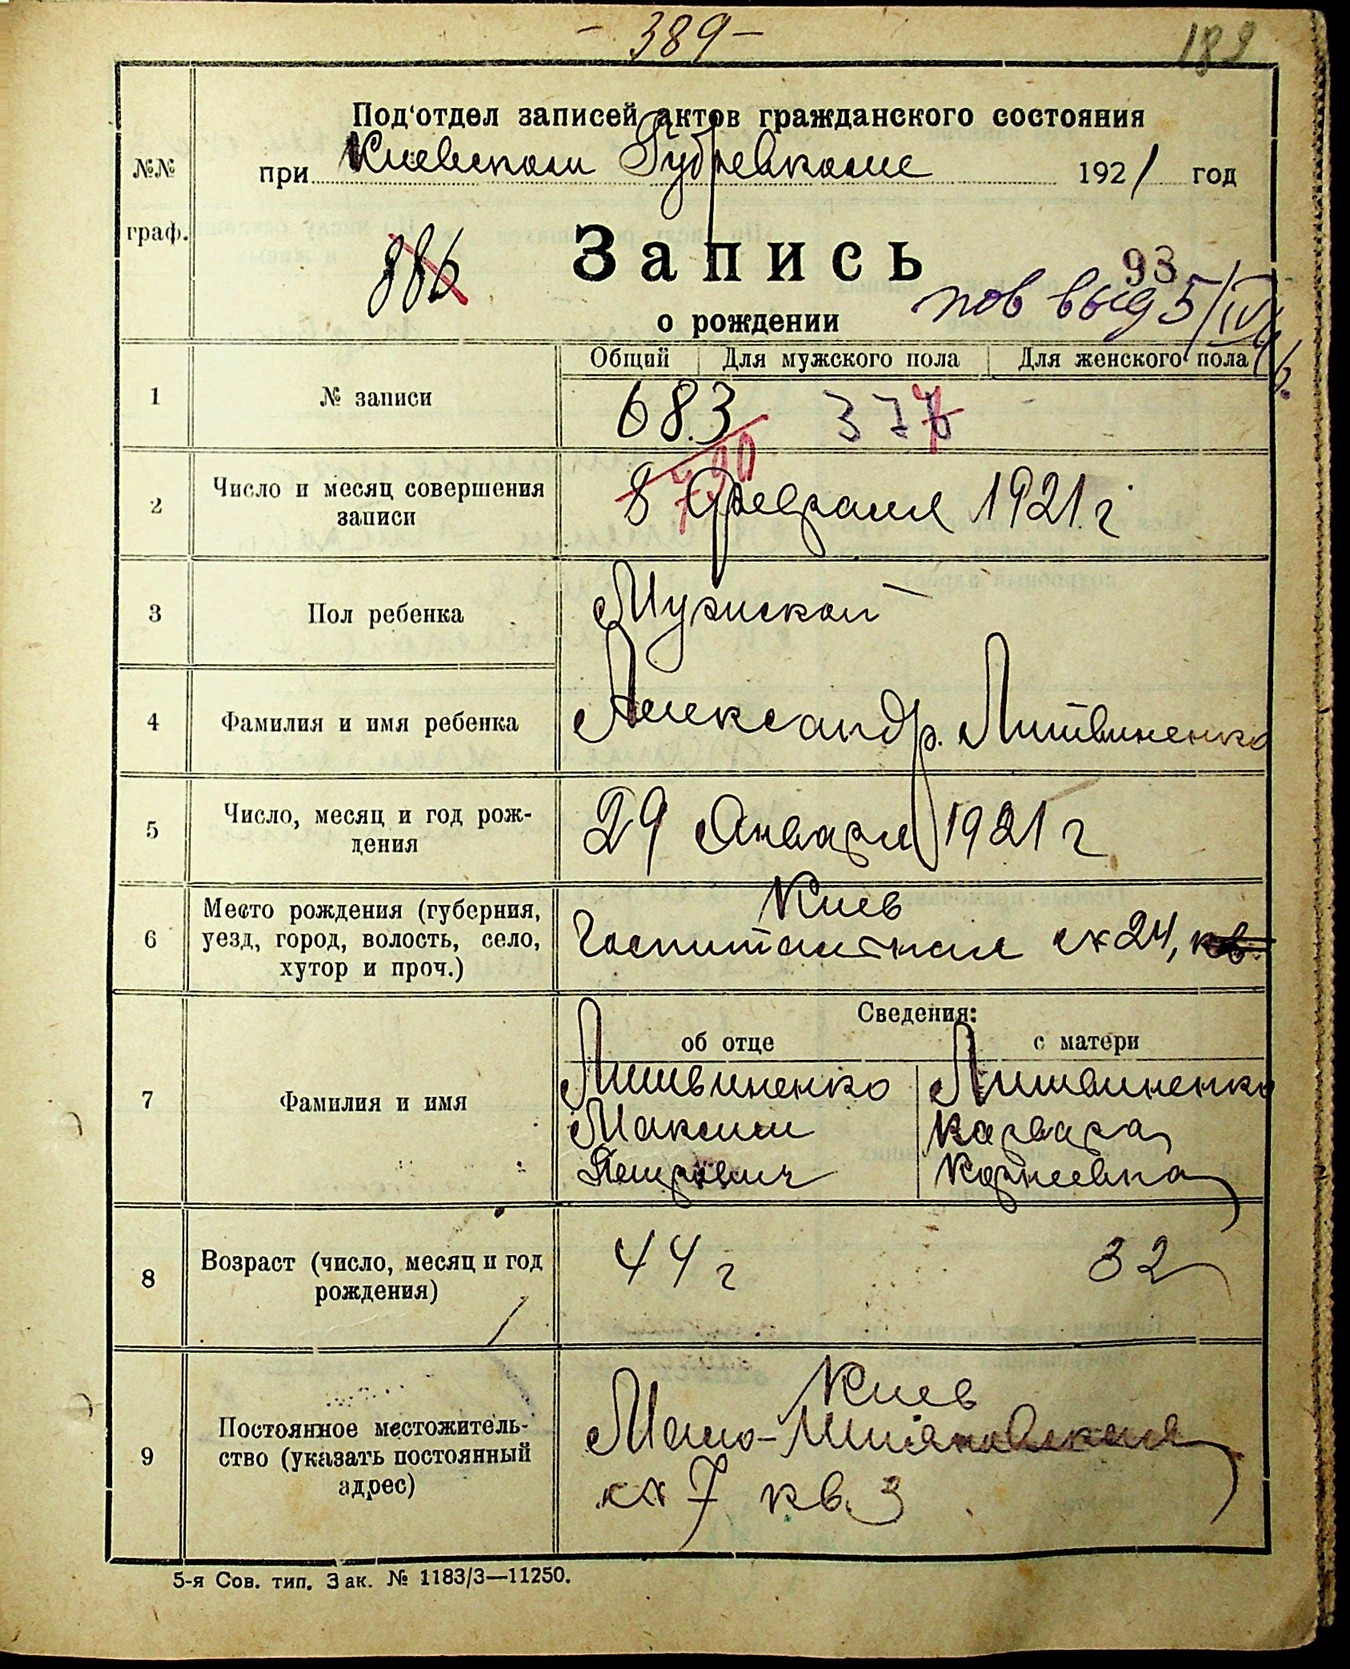 - 389 -
189
Под'отдел записей актов гражданского состояния
при Киевском Губревкоме 1921 год
№№
граф.
886
Запись
93
о рождении
пов выд 5/IV
Общий Для мужского пола Для женского пола
1 № записи 683 377
790
2 Число и месяц совершения
записи
8 Февраля 1921 г
3 Пол ребенка Мужской
4 Фамилия и имя ребенка Александр. Литвиненко
5 Число, месяц и год рож-
дения
29 Января 1921 г
6 Место рождения (губерния,
уезд, город, волость, село,
хутор и проч.)
Киев
Госпитальная № 24, кв.
Сведения:
об отце с матери
7 Фамилия и имя
Литвиненко Литвиненко
Максим Варвара
Петрович Корнеевна
8 Возраст (число, месяц и год
рождения)
44 г 32
9 Постоянное местожитель-
ство (указать постоянный
адрес)
Киев
Мало-
№ 7 кв. 3
5-я Сов. тип. Зак. № 1183/3—11250.